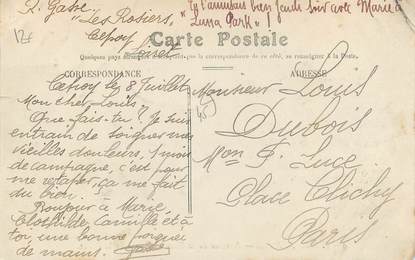 R. Gasse
"Les Rosiers"
Cepoy
Loiret
"Tu t'amusais bien Jeudi soir avec Marie à
Luna Park"!
Carte Postale
Quelques pays étrangers n'acceptent pas la correspondance de ce côté, se renseigner à la Poste.
CORRESPONDANCE
Cepoy le 8 Juillet
Mon cher Louis
Que fais-tu? Je suis
entrain de soigner mes
vieilles douleurs, 1 mois
de campagne, c'est pour
me retaper, ça me fait
du bien.
Bonjour à Marie
Clothilde Camille et à
toi, une bonne poignée
de mains.
ADRESSE
Monsieur Louis
Dubois
Mon F. Luce
Place Clichy
Paris